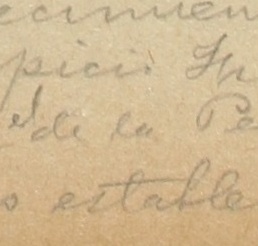 ecimien
picio In
el de la Pe
o estable